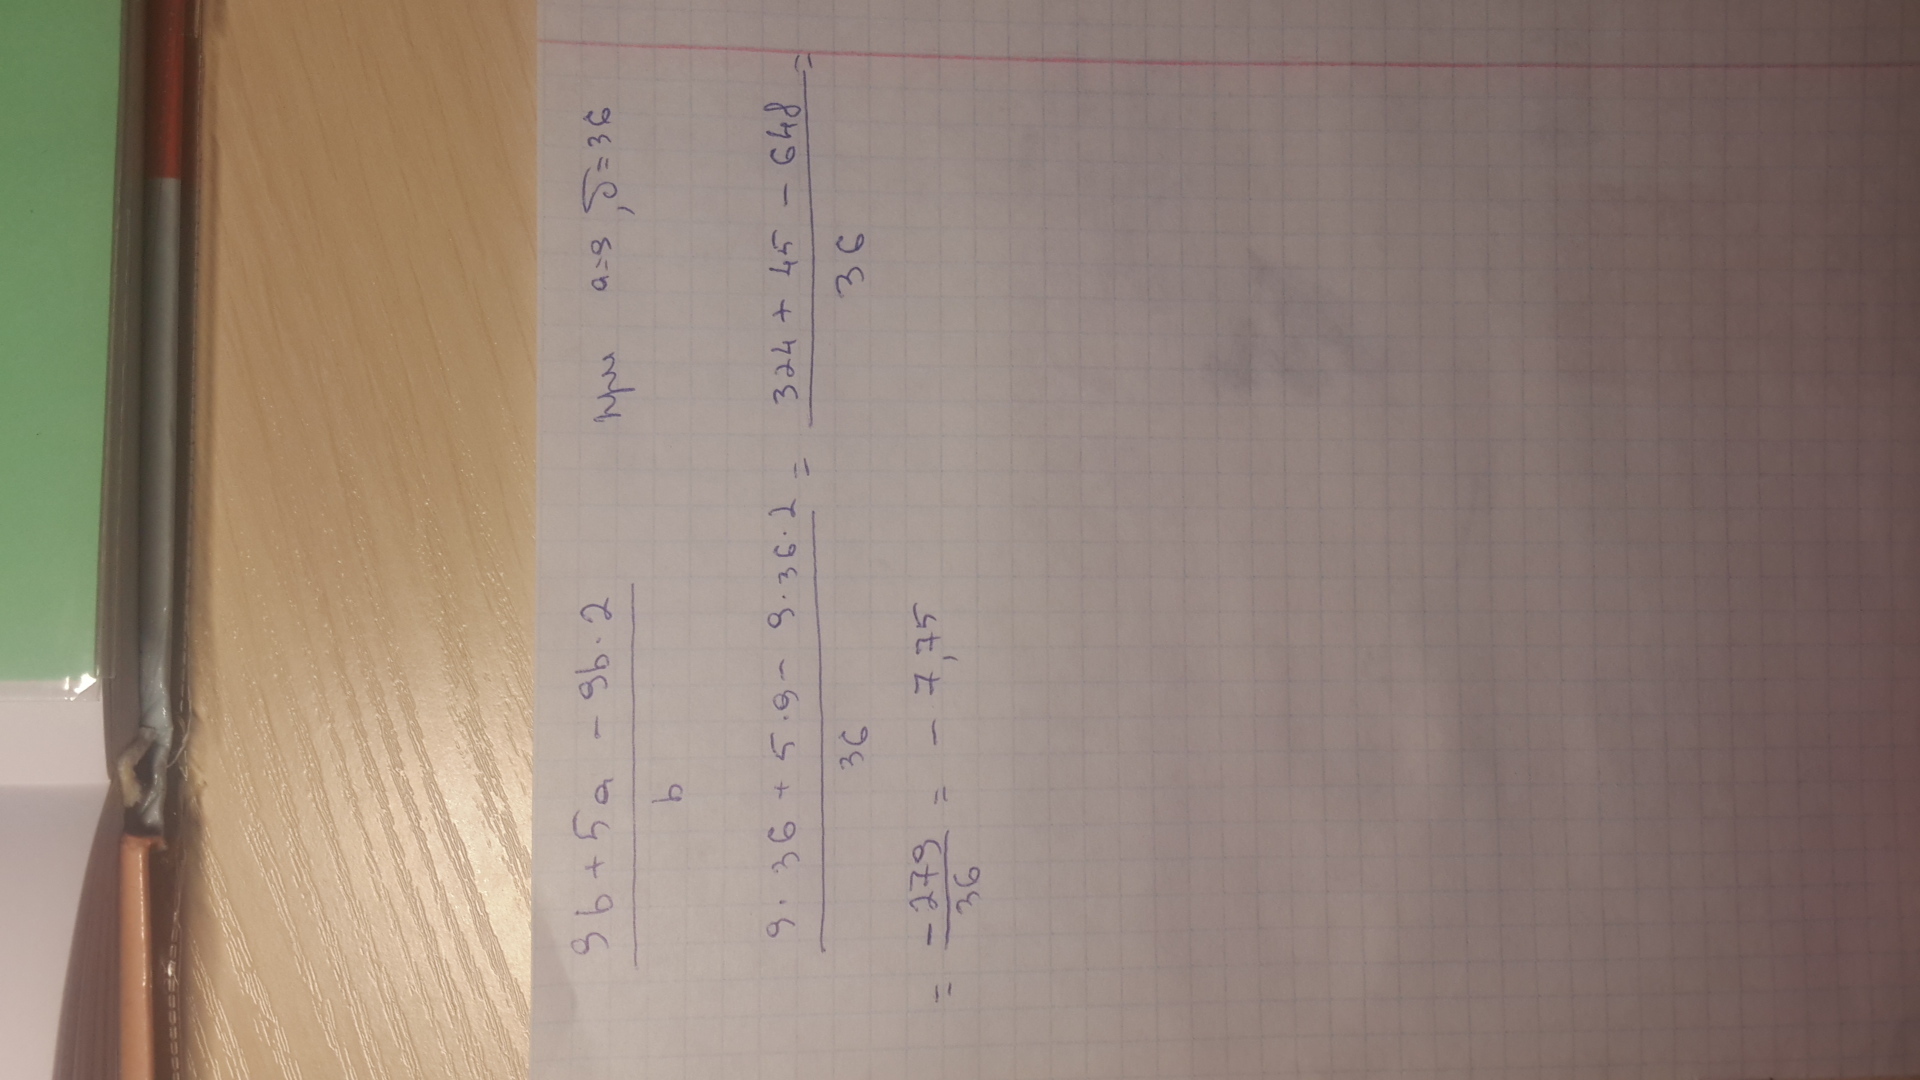 9b+5a - 9b·2 / b при a=9, б=36
9·36+5·9-9·36·2 / 36 = 324+45-648 / 36 =
= -279/36 = -7,75